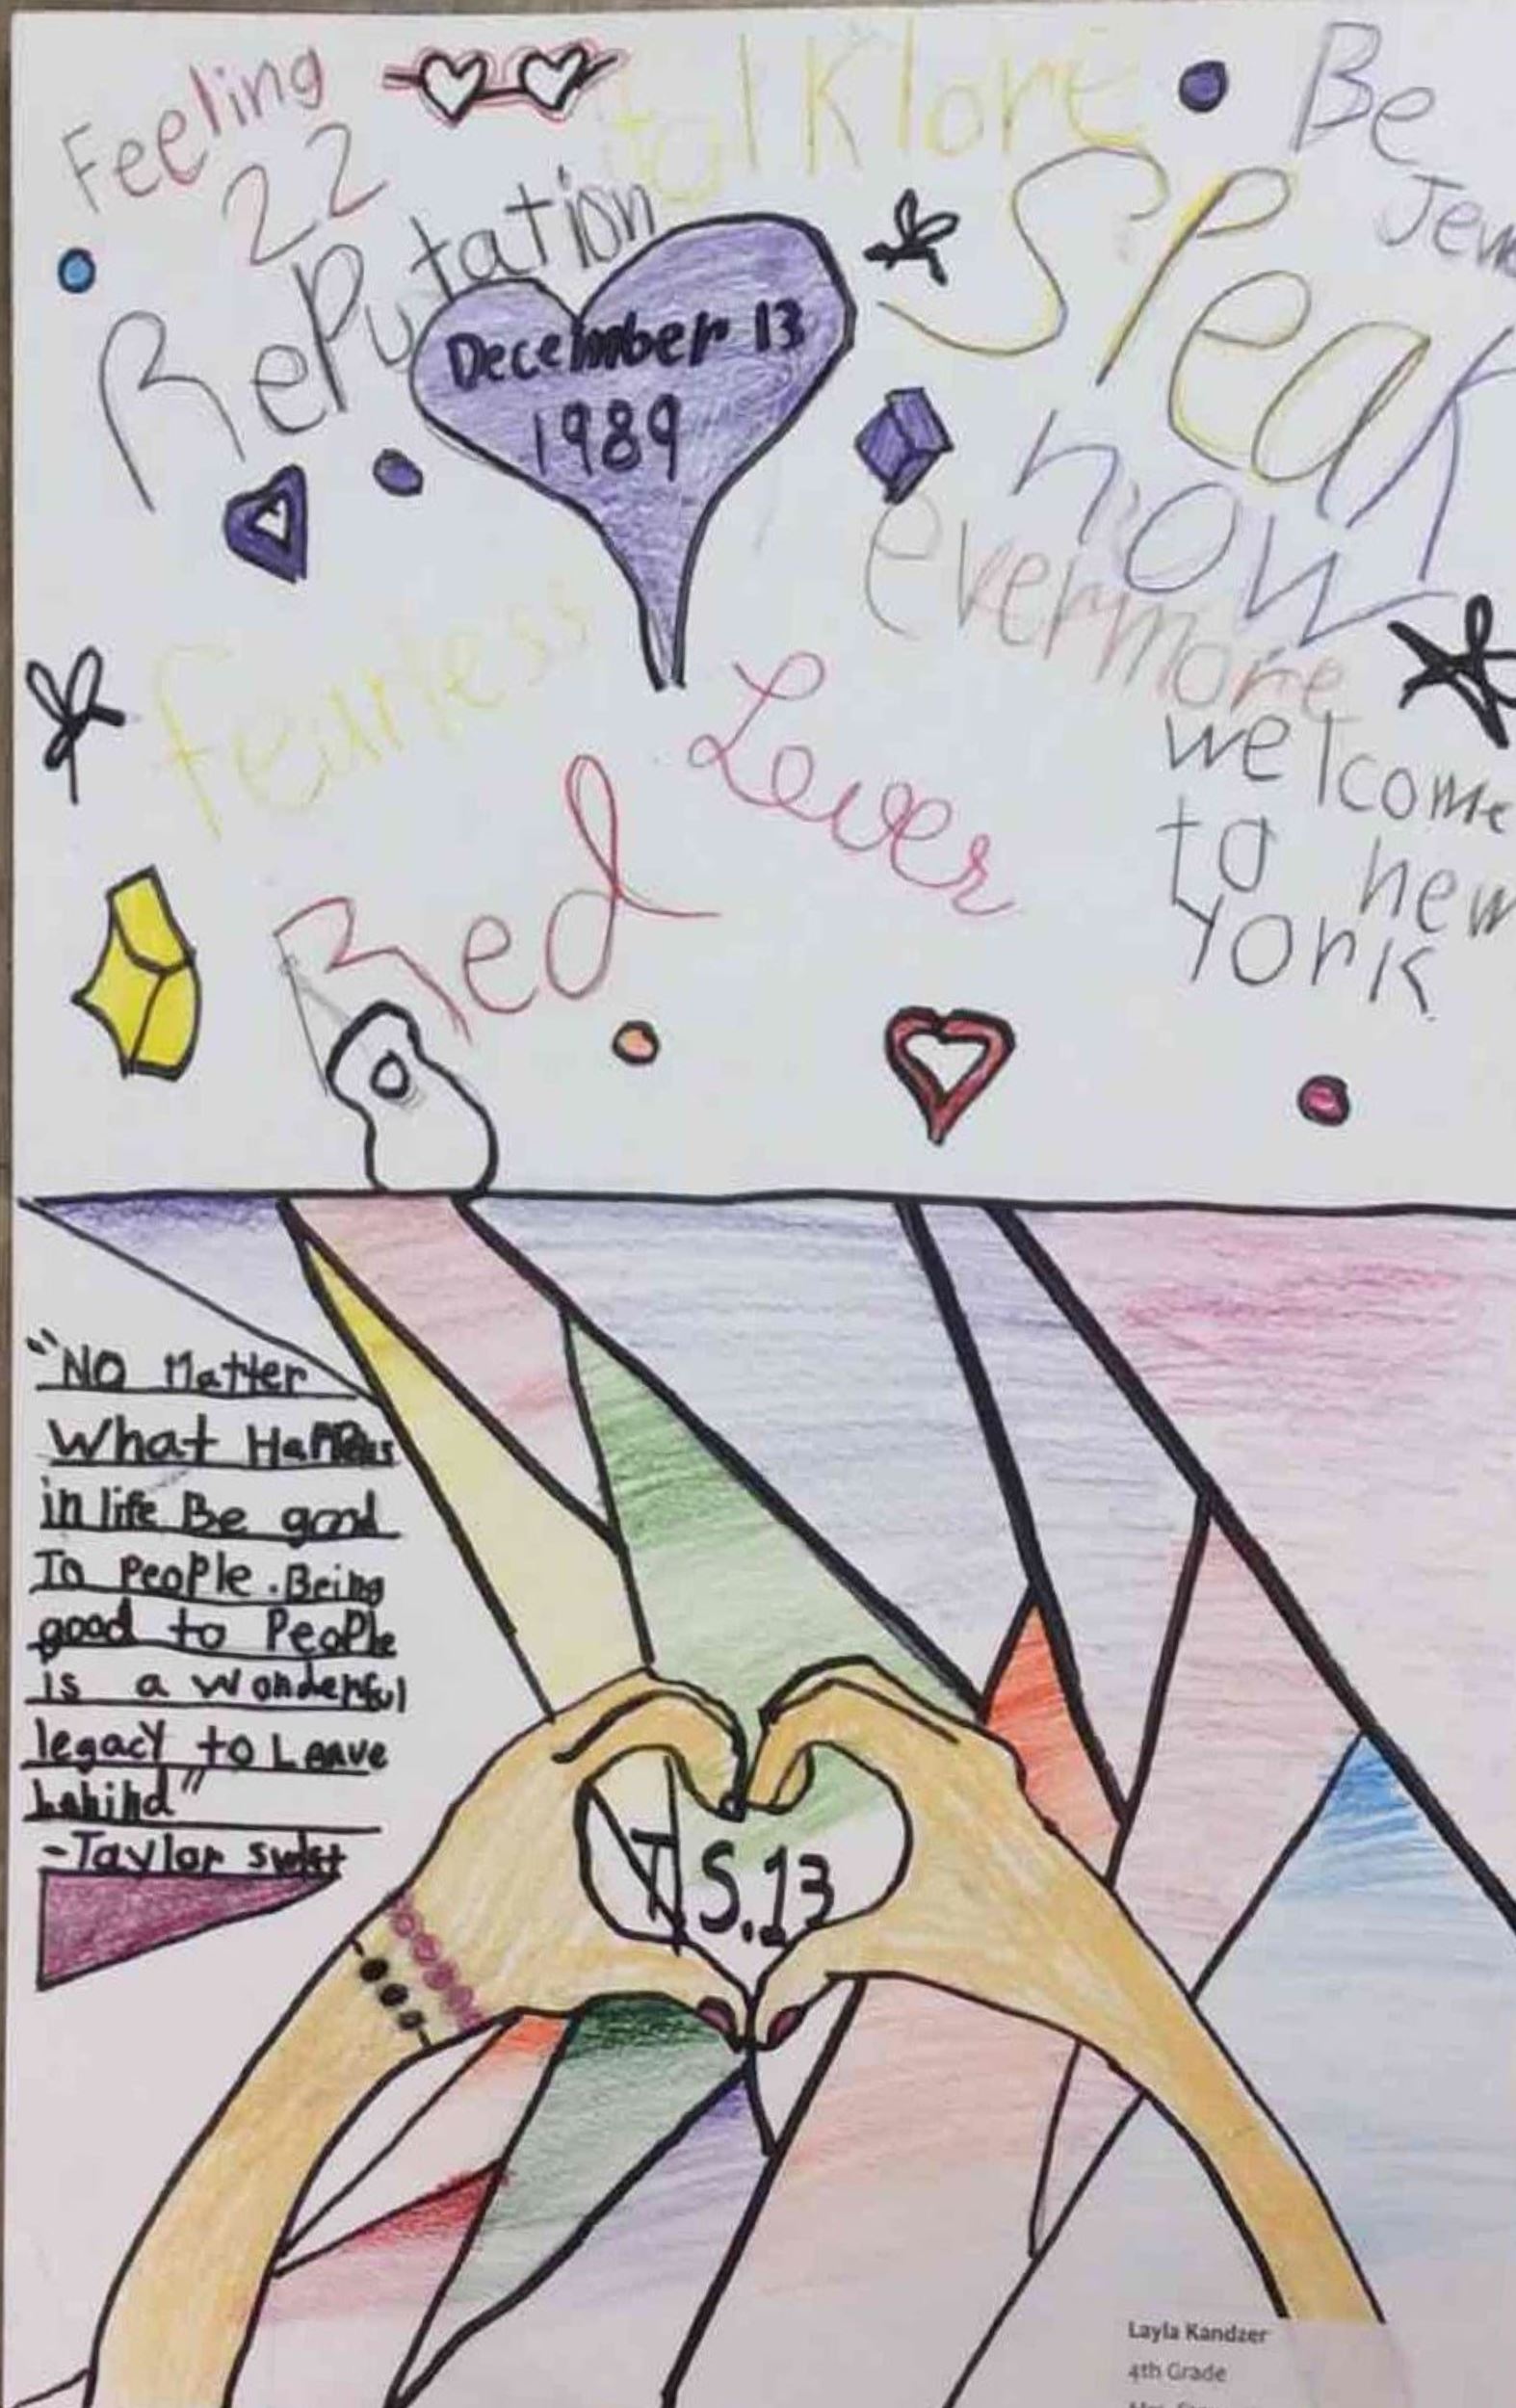 Feeling
22
folklore
Be
Jew
Reputation
Speak
now
December 13
1989
evermore
fearless
Lover
Red
welcome
to new
York
"No Matter
What Happens
in life Be good
To people. Being
good to People
is a wonderful
legacy to Leave
behind"
-Taylor swift
T.S.13
Layla Kandzer
4th Grade